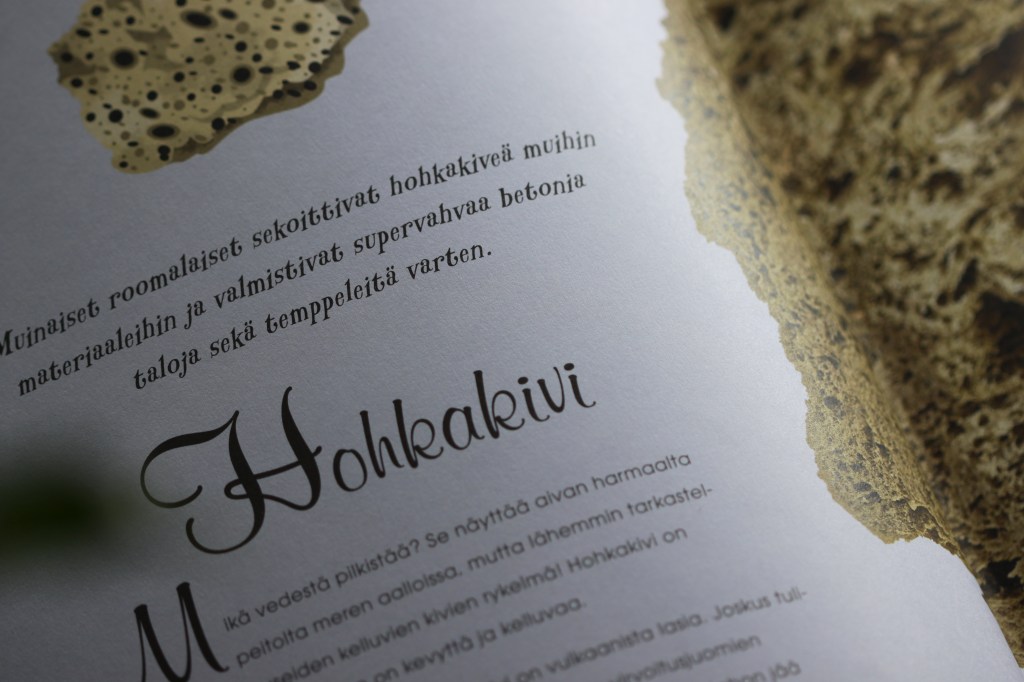 Muinaiset roomalaiset sekoittivat hohkakiveä muihin
materiaaleihin ja valmistivat supervahvaa betonia
taloja sekä temppeleitä varten.
Hohkakivi
Mikä vedestä pilkistää? Se näyttää aivan harmaalta
peitolta meren aalloissa, mutta lähemmin tarkastel-
kelluvien kivien rykelmä! Hohkakivi on
on kevyttä ja kelluvaa.
on vulkaanista lasia. Joskus tuli-